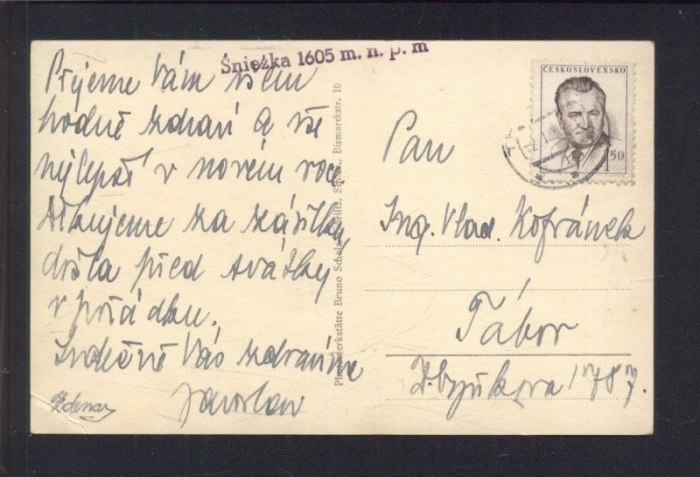 Śnieżka 1605 m. n. p. m
Přejeme Vám všem
hodně zdraví a vše
nejlepší v novém roce
Děkujeme za zásilky
došla před svátky
v pořádku.
Srdečně Vás zdravíme
Jaroslav
Zdena
Bruno Scholz, Bismarckstr. 10
ČESKOSLOVENSKO
1.50
Pan
Ing. Vlad. Kofránek
Tábor